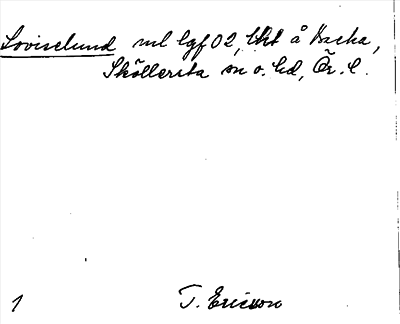 Loviselund ml lgf 02, lht å Backa,
Sköllersta sn o. hd, Ör. l.
1 T. Ericson